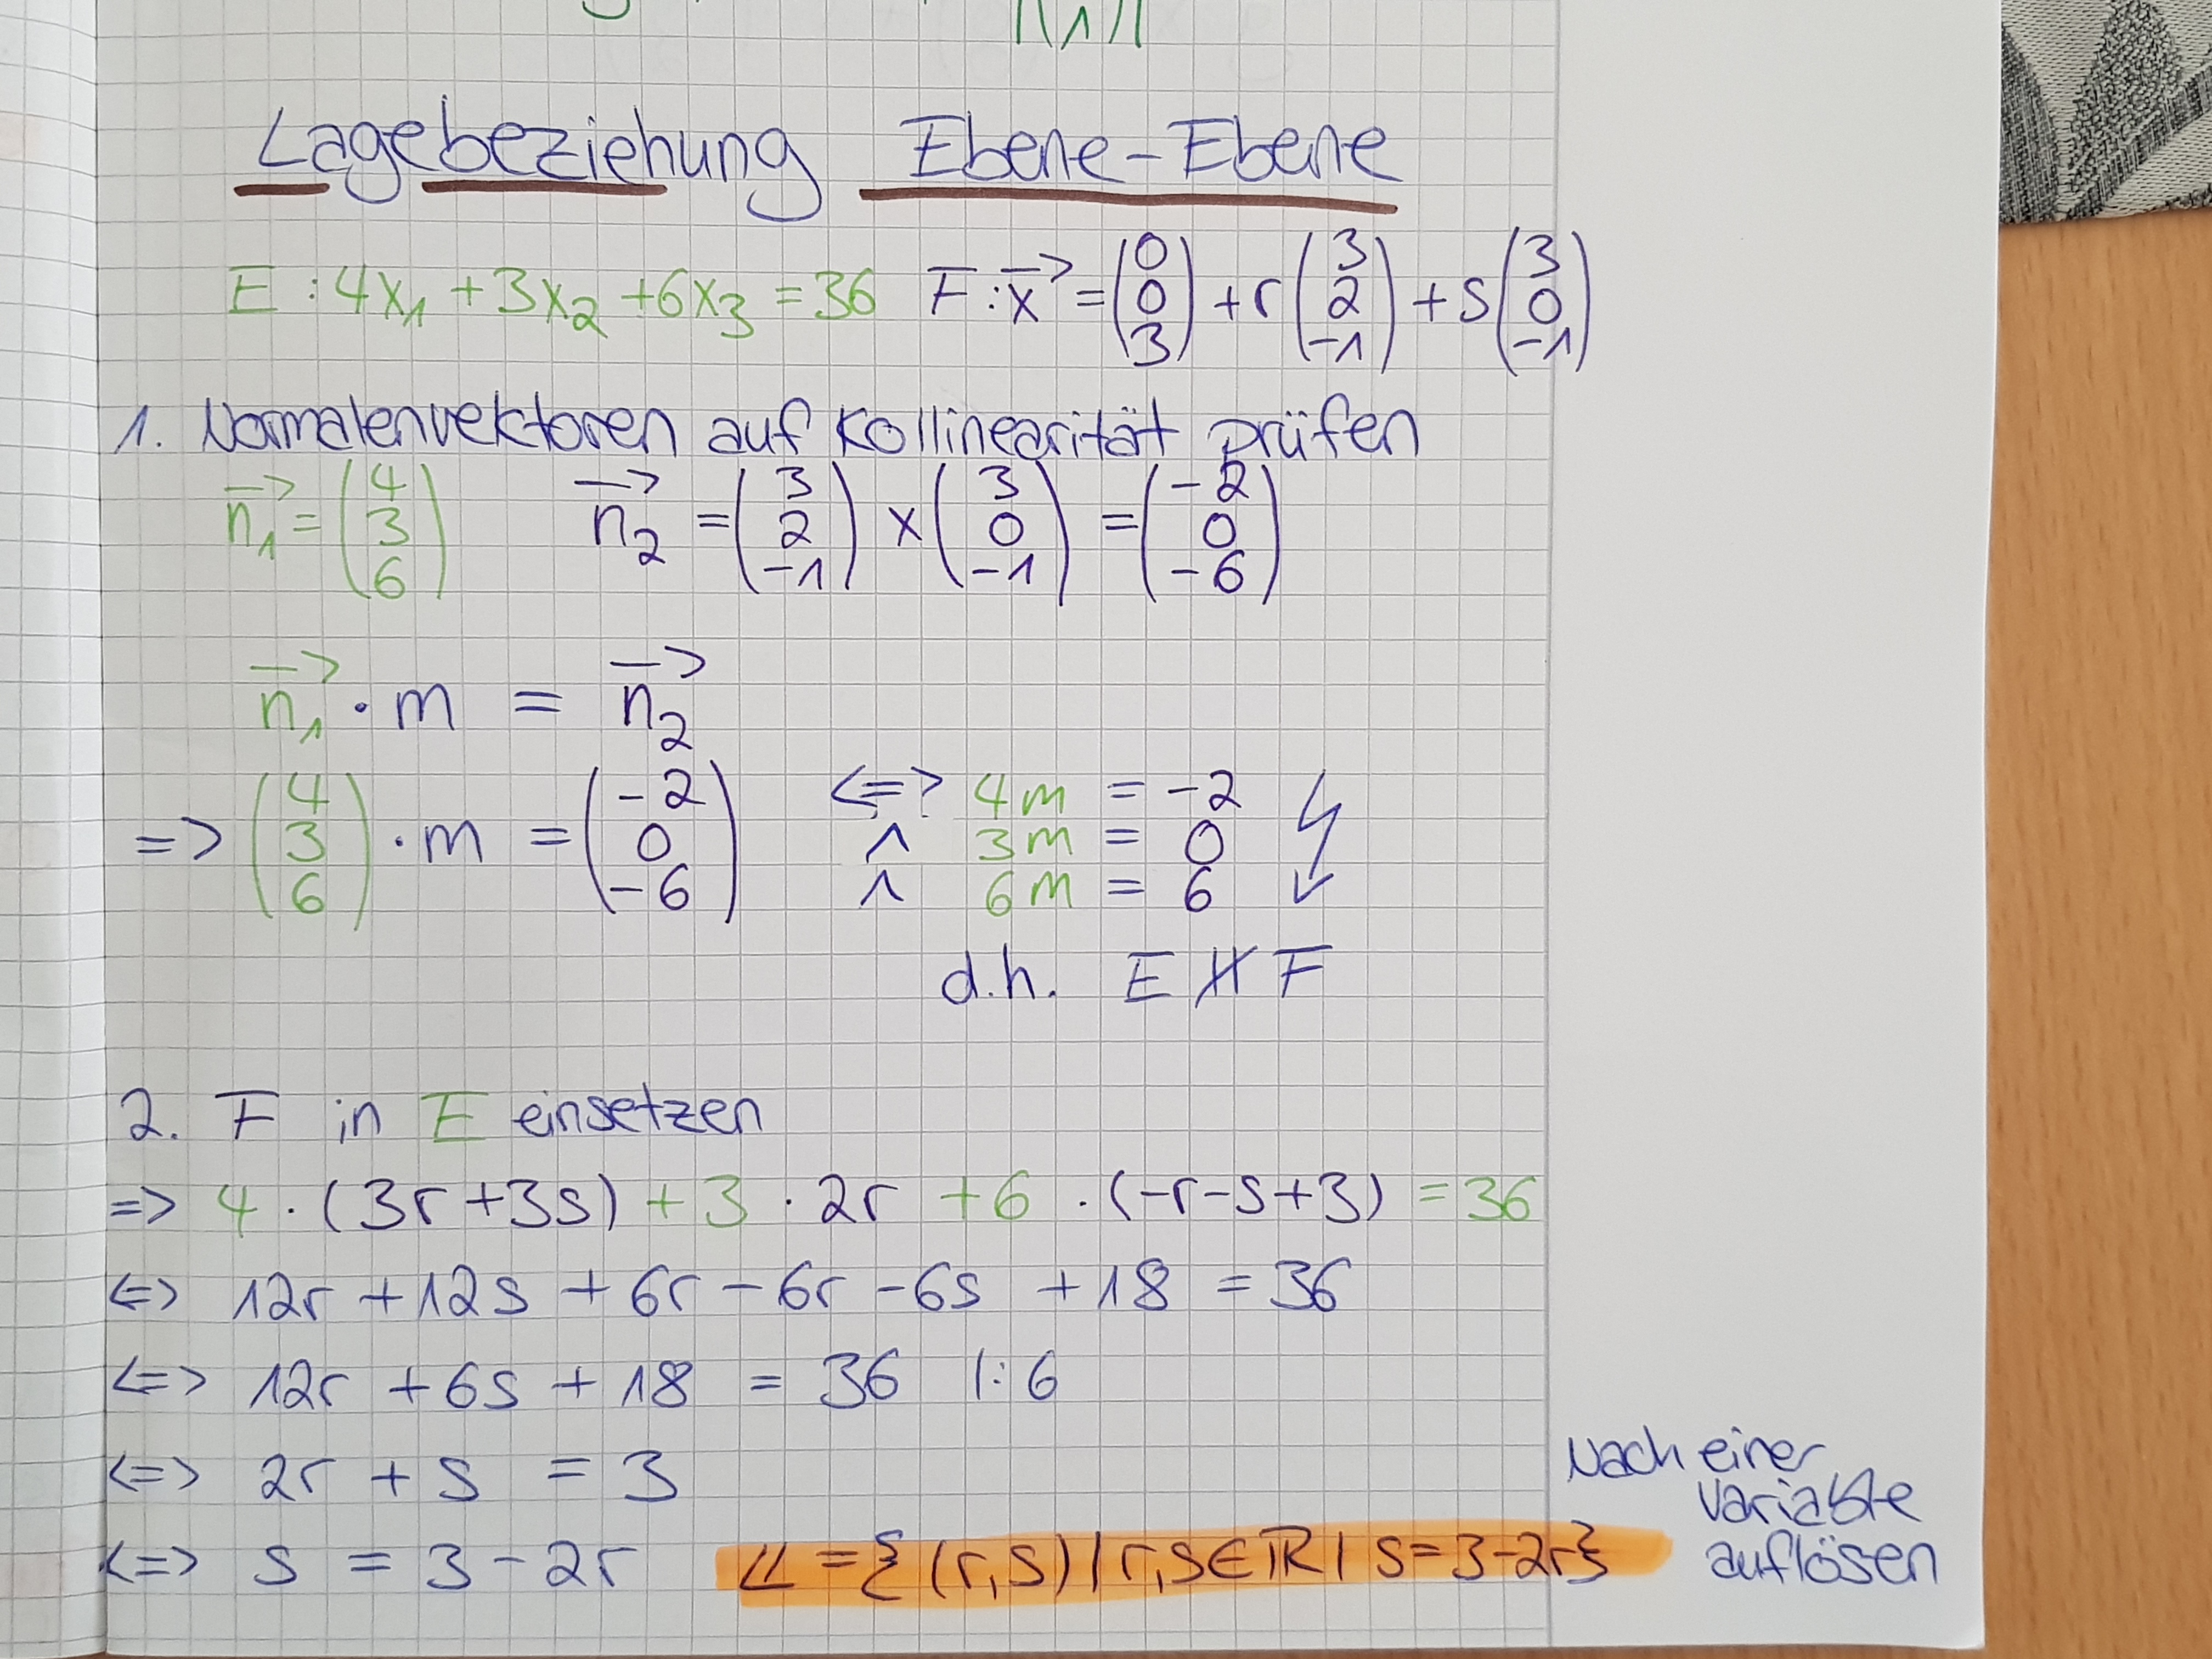 |(1)|
Lagebeziehung Ebene-Ebene
E: 4x₁ + 3x₂ + 6x₃ = 36 F: x⃗ = (0 0 3) + r (3 2 -1) + s (3 0 -1)
1. Normalenvektoren auf Kollinearität prüfen
n₁⃗ = (4 3 6) n₂⃗ = (3 2 -1) x (3 0 -1) = (-2 0 -6)
n₁⃗ · m = n₂⃗
=> (4 3 6) · m = (-2 0 -6) <=> 4m = -2
∧ 3m = 0
∧ 6m = 6
d.h. E ∦ F
2. F in E einsetzen
=> 4 · (3r+3s) + 3 · 2r + 6 · (-r-s+3) = 36
<=> 12r + 12s + 6r - 6r - 6s + 18 = 36
<=> 12r + 6s + 18 = 36 |:6
<=> 2r + s = 3
<=> s = 3 - 2r 𝕃 = {(r,s) | r,s ∈ ℝ | s = 3-2r}
Nach einer
Variable
auflösen